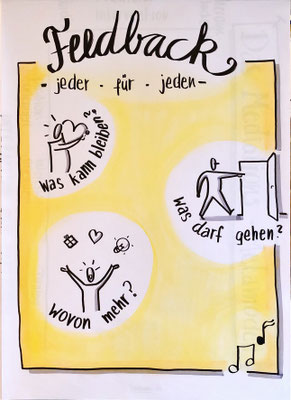 Feedback
- jeder · für · jeden -
was kann bleiben?
was darf gehen?
wovon mehr?